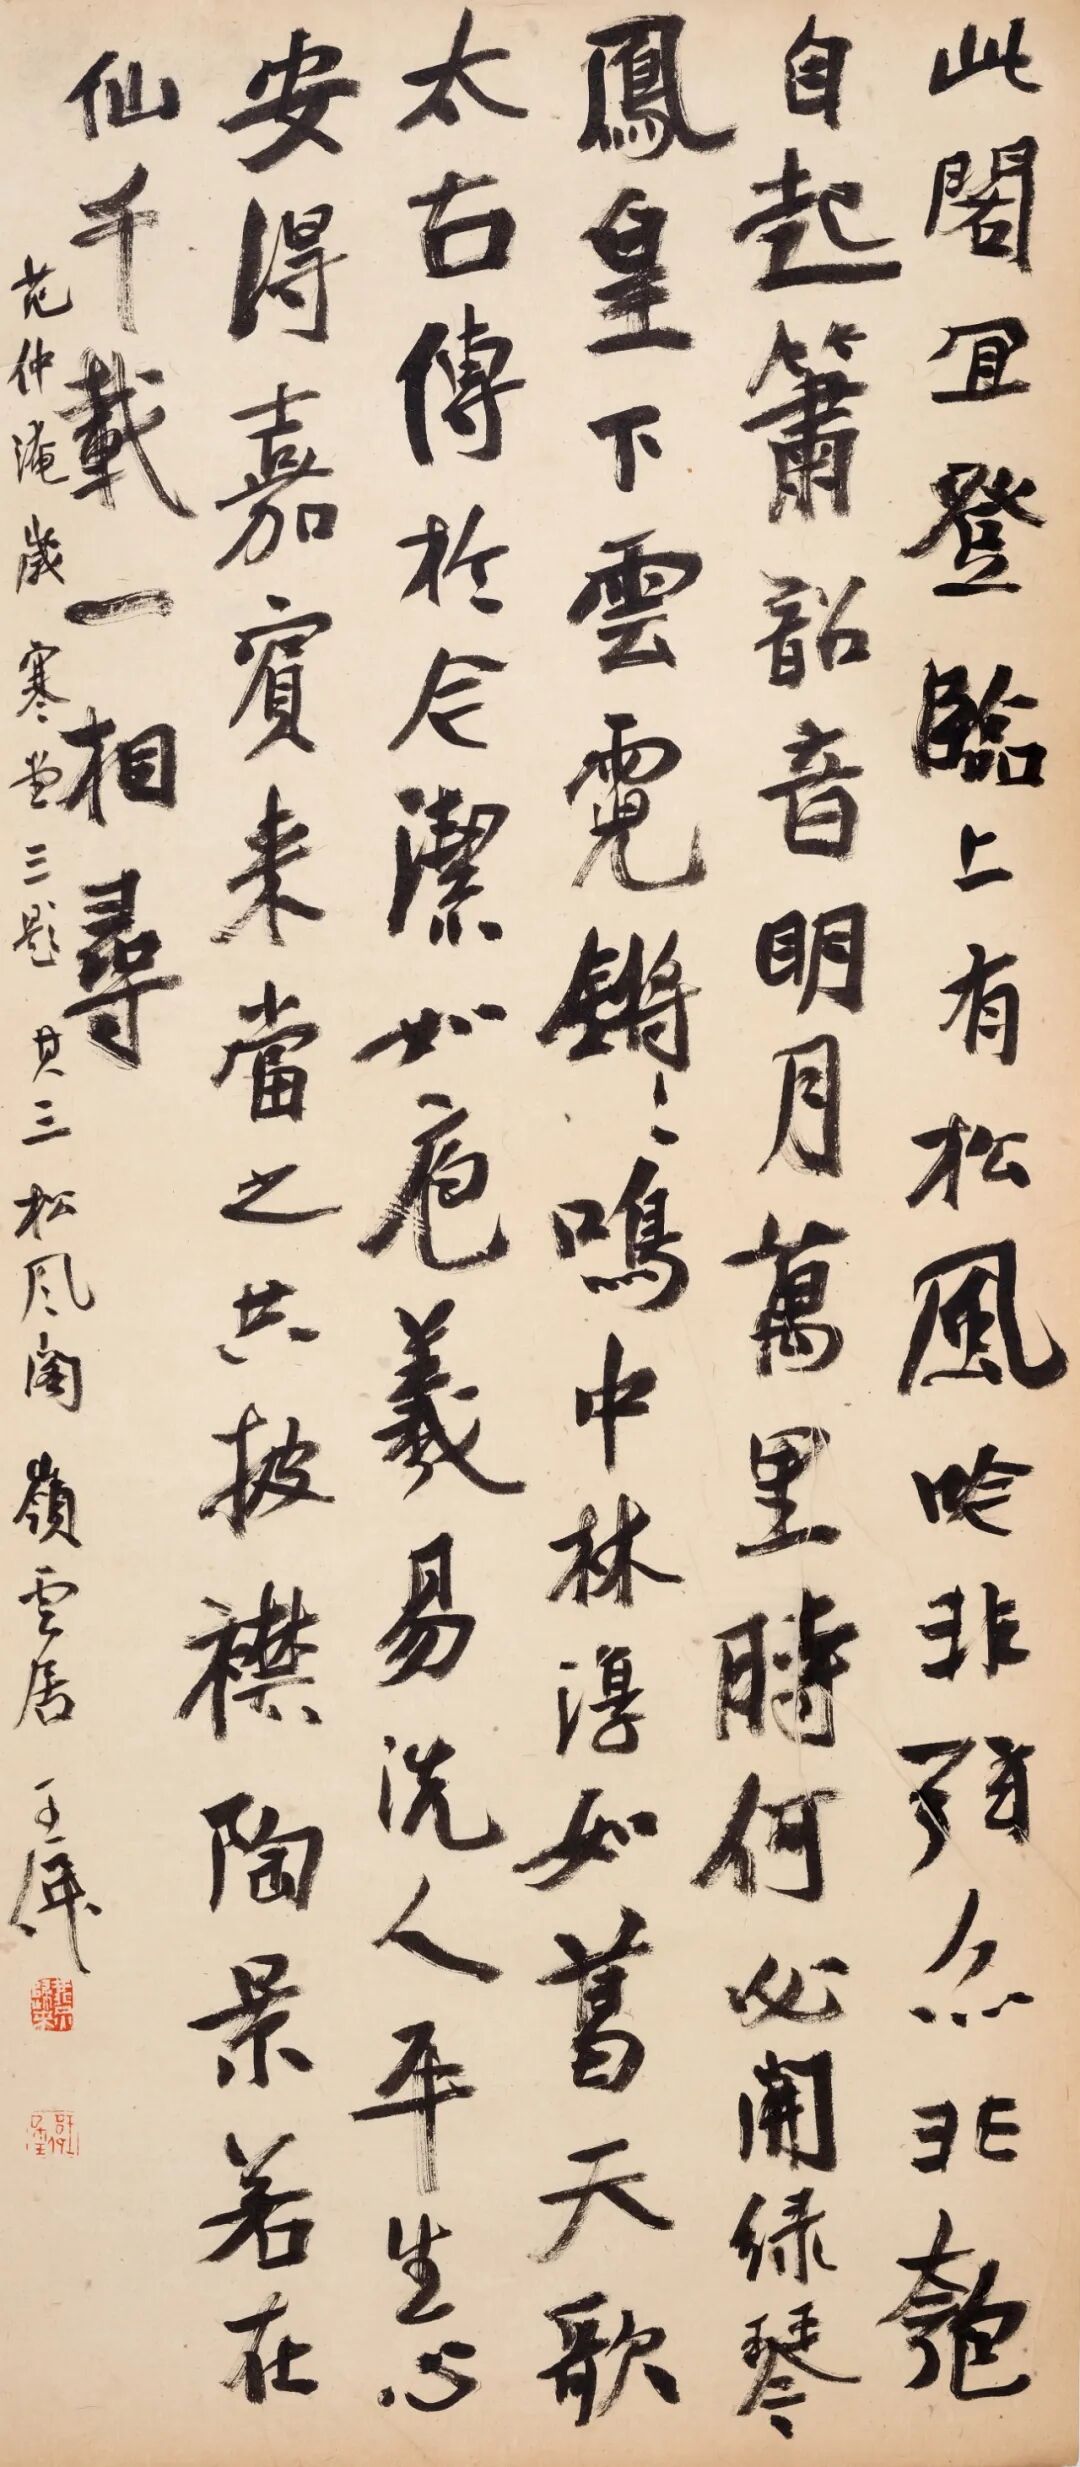 此閣宜登臨上有松風吟非弦亦非匏
自起簫韶音明月萬里時何必開綠琴
鳳皇下雲霓鏘〻鳴中林淳如葛天歌
太古傳於今潔如庖羲易洗人平生心
安得嘉賓来當之共披襟陶景若在
仙千載一相尋
范仲淹歲寒堂三題其三松风阁嶺雲居